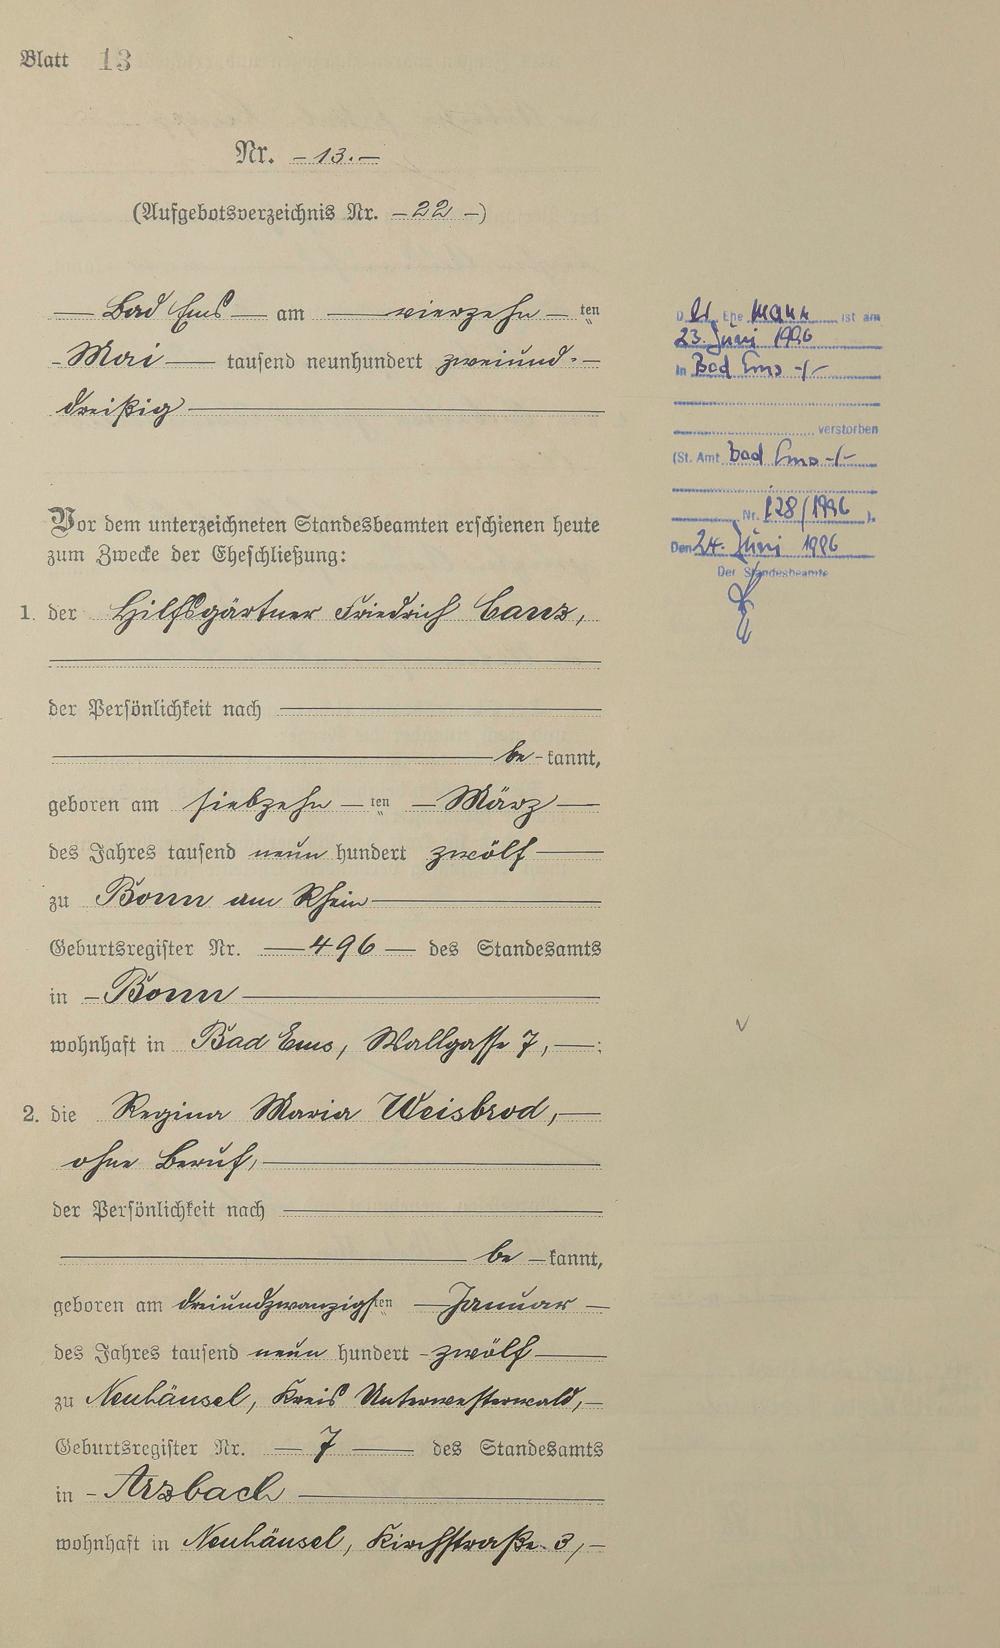 Blatt 13
Nr. – 13. –
(Aufgebotsverzeichnis Nr. – 22 –)
— Bad Ems — am — vierzehn — ten
- Mai — tausend neunhundert zweiund- —
dreißig —
Vor dem unterzeichneten Standesbeamten erschienen heute
zum Zwecke der Eheschließung:
1. der Hilfsgärtner Friedrich
der Persönlichkeit nach —
— be - kannt,
geboren am siebzehn — ten — März —
des Jahres tausend neun hundert zwölf —
zu Bonn am Rhein —
Geburtsregister Nr. — 496 — des Standesamts
in – Bonn —
wohnhaft in Bad Ems, Wallgasse 7, — :
2. die Regina Maria Weisbrod, —
ohne Beruf, —
der Persönlichkeit nach —
— be — kannt,
geboren am dreiundzwanzigsten — Januar —
des Jahres tausend neun hundert - zwölf —
zu Neuhäusel, Kreis Unterwesterwald, —
Geburtsregister Nr. — 7 — des Standesamts
in - Arzbach —
wohnhaft in Neuhäusel, Kirchstraße 3, —
Der Ehe Mann ist am
23. Juni 1996
in Bad Ems -/-
verstorben
(St. Amt Bad Ems -/-
Nr. 128/1996 ).
Den 24. Juni 1996
Der Standesbeamte